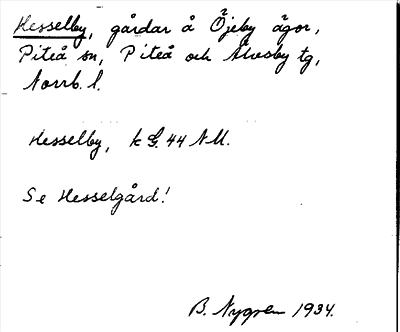 Hesselby, gårdar å Öjeby ägor,
Piteå sn, Piteå och Älvsby tg,
Norrb. l.
Hesselby, k G. 44 NM.
Se Hesselgård!
B. Nygren 1934.